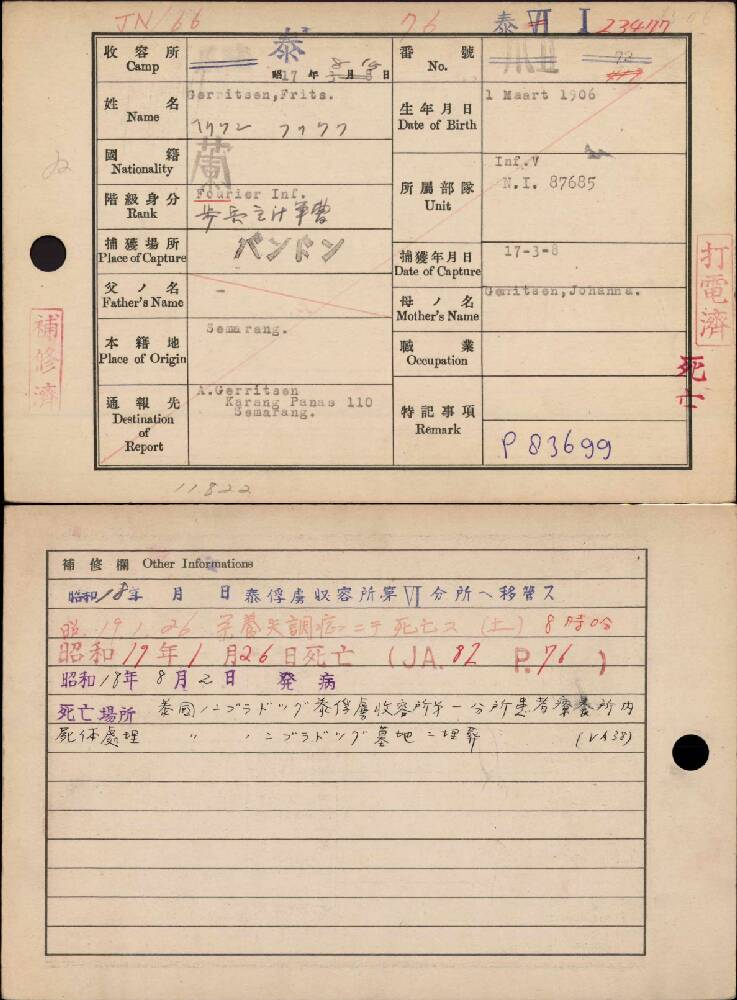 JN/66 76 泰 VI I 23477
收容所 Camp 泰 昭17年8月15日
番號 No. 72
姓名 Name Gerritsen,Frits.
生年月日 Date of Birth 1 Maart 1906
國籍 Nationality 蘭
所屬部隊 Unit Inf.V
N.I. 87685
階級身分 Rank Fourier Inf.
歩兵主計軍曹
捕獲場所 Place of Capture バンドン
捕獲年月日 Date of Capture 17-3-8
父ノ名 Father's Name -
母ノ名 Mother's Name Gerritsen,Johanna.
本籍地 Place of Origin Semarang.
職業 Occupation
通報先 Destination of Report A.Gerritsen
Karang Panas 110
Semarang.
特記事項 Remark P 83699
補修濟
打電濟
死亡
11822
補修欄 Other Informations
昭和18年 月 日 泰俘虜収容所第VI分所ヘ移管ス
昭.19.1.26 栄養失調症ニテ死亡ス (土) 8時0分
昭和19年1月26日死亡 (JA.82 P.76)
昭和18年8月2日 発病
死亡場所 泰国ノンプラドック泰俘虜收容所第一分所患者療養所内
死体處理 〃 ノンプラドック墓地ニ埋葬 (VA38)